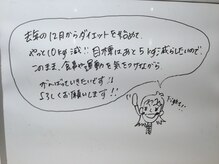 去年の12月からダイエットを始めて、
やっと10kg減!!目標はあと5kg減らしたいので
このまま、食事や運動に気をつけながら
がんばっていきたいです!!
よろしくお願いします!!